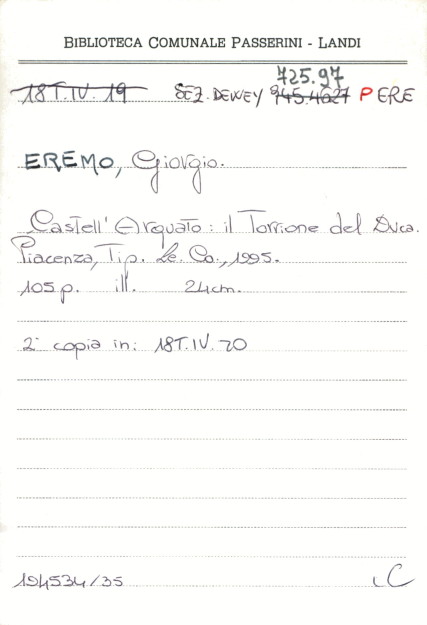 BIBLIOTECA COMUNALE PASSERINI - LANDI
725.97
18T.IV.19 SEZ. DEWEY 945.4627 P ERE
EREMO, Giorgio.
Castell'Arquato: il Torrione del Duca.
Piacenza, Tip. Le. Co., 1995.
105 p. ill. 24cm.
2ª copia in: 18T.IV.20
194534/35